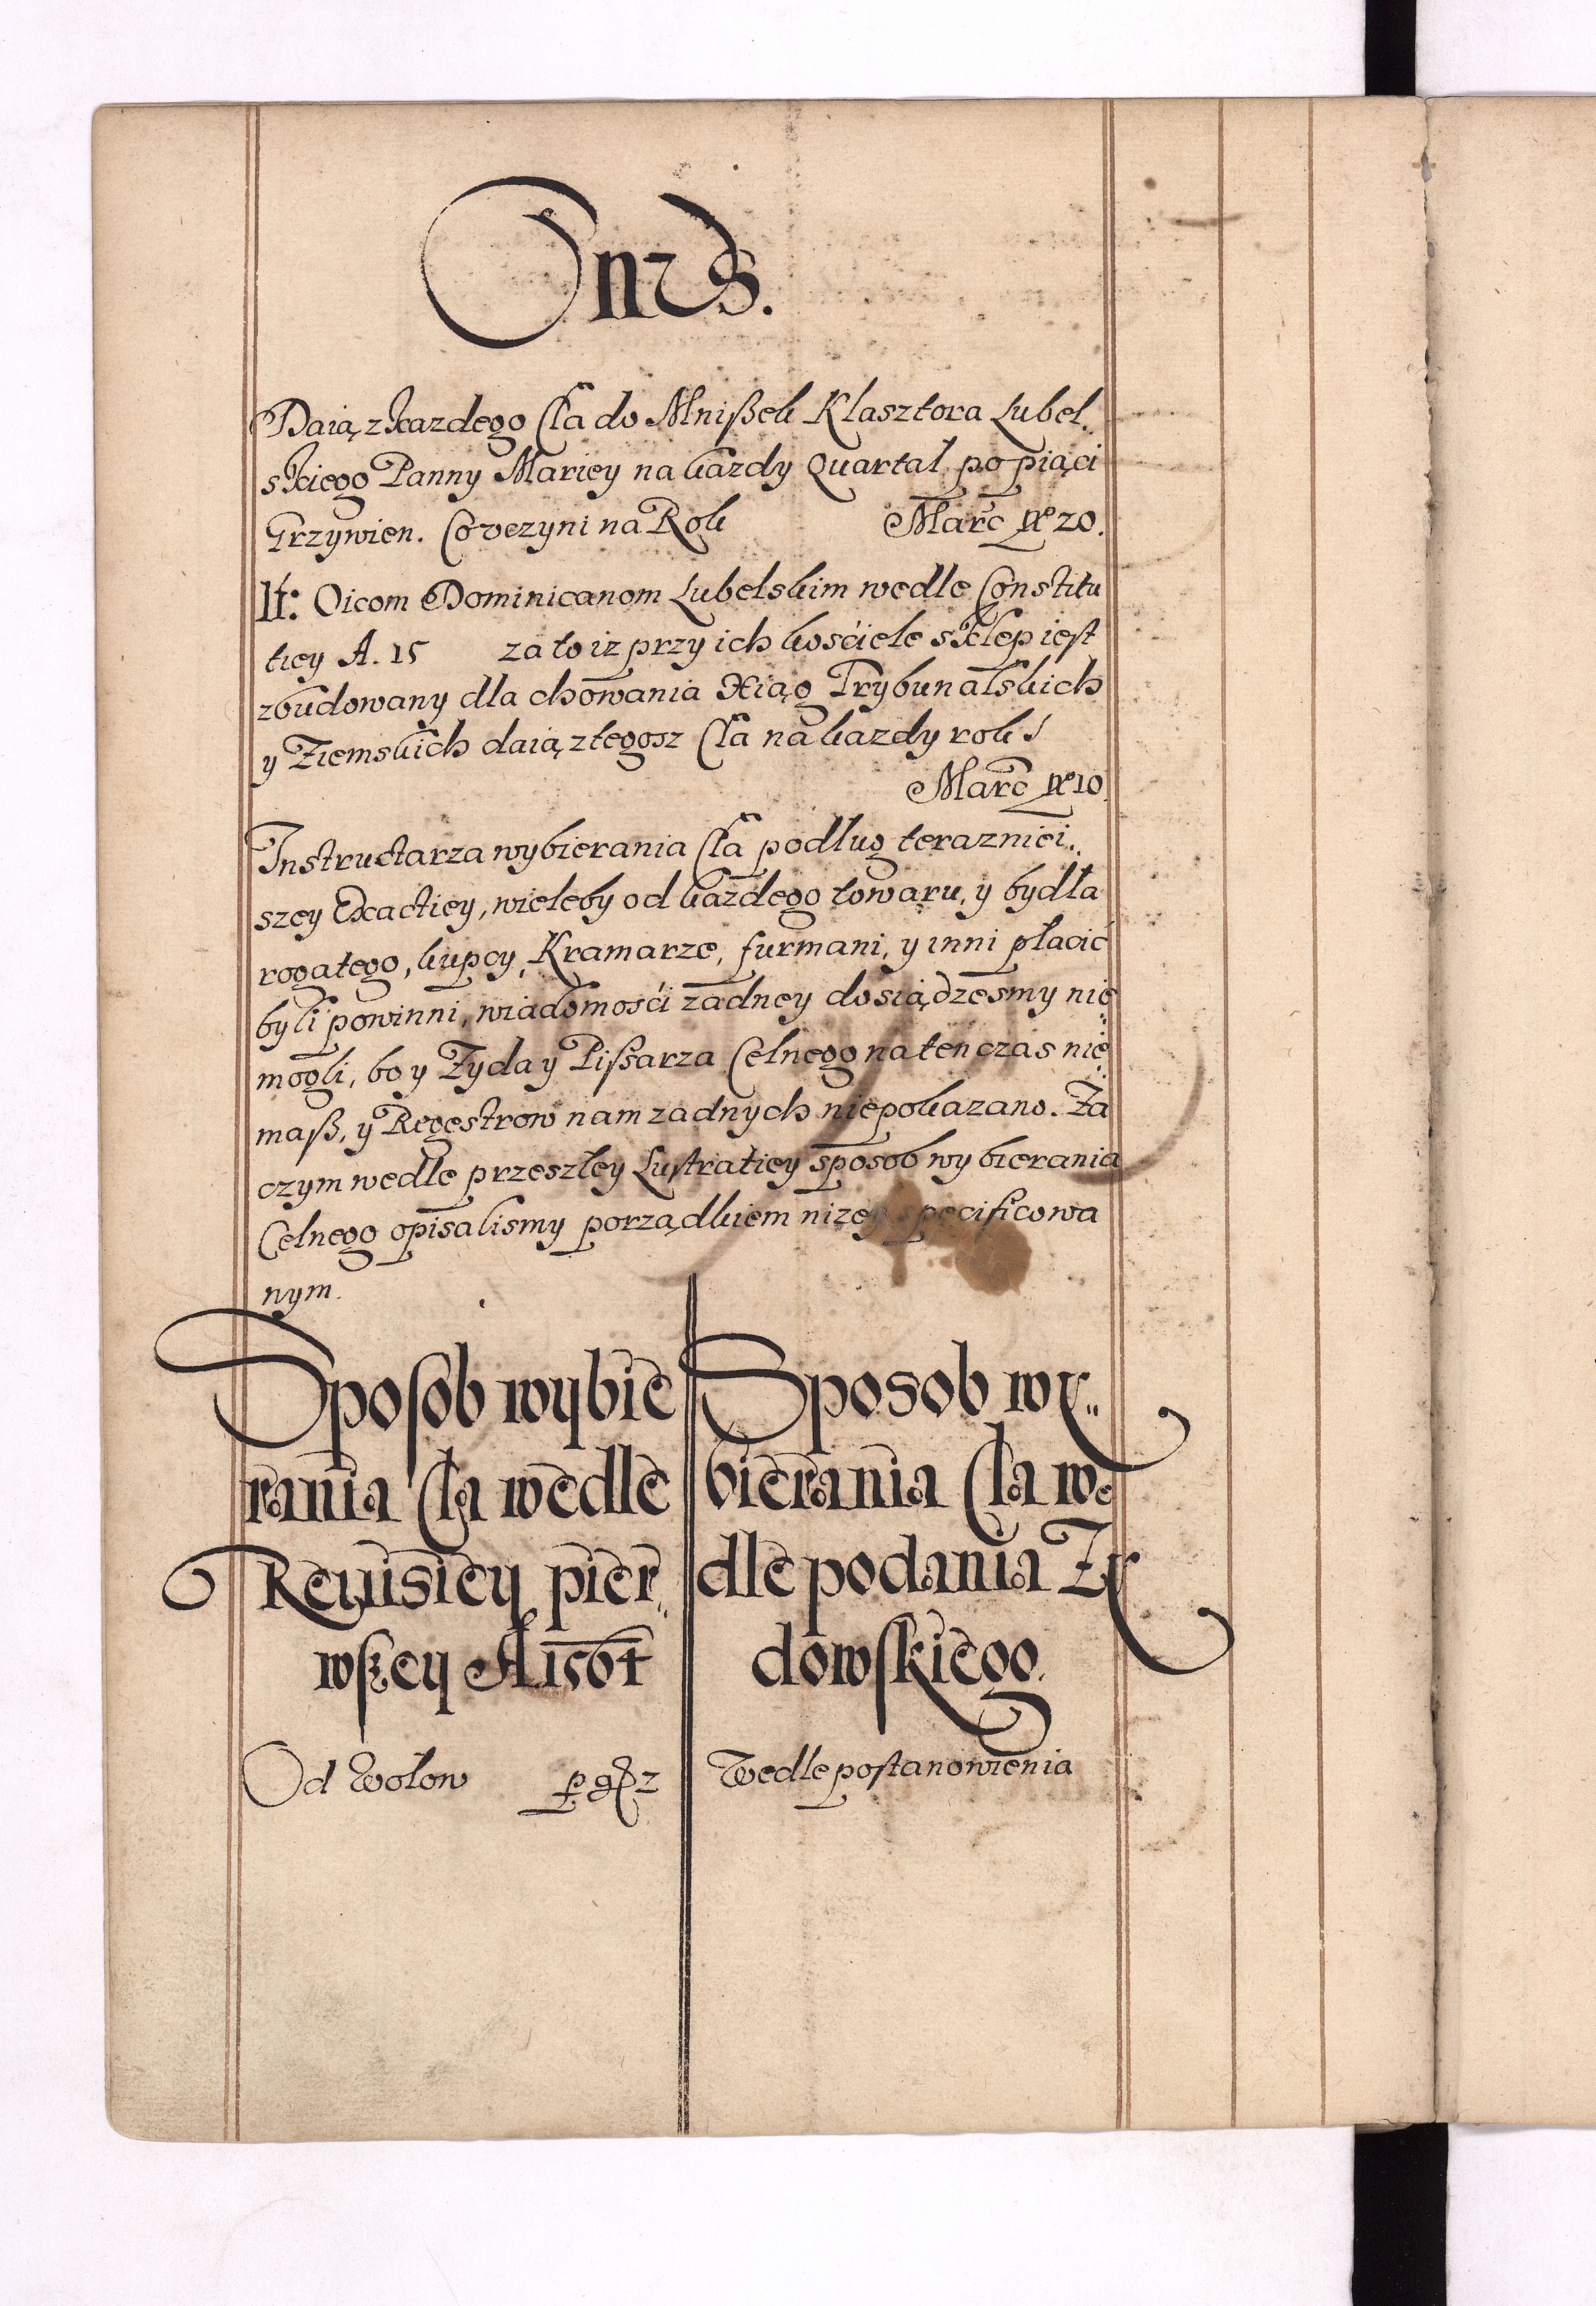 Onus.
Daią z kazdego Cła do Mnißek Klasztora Lubel„
skiego Panny Mariey na kazdy Quartal po piąci
Grzywien. Co vczyni na Rok Marc 20.
It: Oicom Dominicanom Lubelskim wedle Constitu
tiey A. 15 za to iz przy ich kościele sklep iest
zbudowany dla chowania Xiąg Trybunalskich
y Ziemskich daią z tegosz Cła na kazdy rok /
Marc 10.
Instructarza wybierania Cła podług terazniei„
szey Exactiey, wieleby od kazdego towaru, y bydła
rogatego, kupcy, Kramarze, furmani, y inni płacić
byli powinni, wiadomości zadney dosiądz esmy nie
mogli, bo y Zyda y Pißarza Celnego na ten czas nie„
maß, y Regestrow nam zadnych niepokazano. Za
czym wedle przeszłey Lustratiey sposob wybierania
Celnego opisalismy porządkiem nizey specificowa
nym.
Sposob wybie
rania Cła wedle
Reuisiey pier„
wszey A 1564
Od Wołow gr 2
Sposob wy„
bierania Cła we
dle podania Zy
dowskiego.
Wedle postanowienia